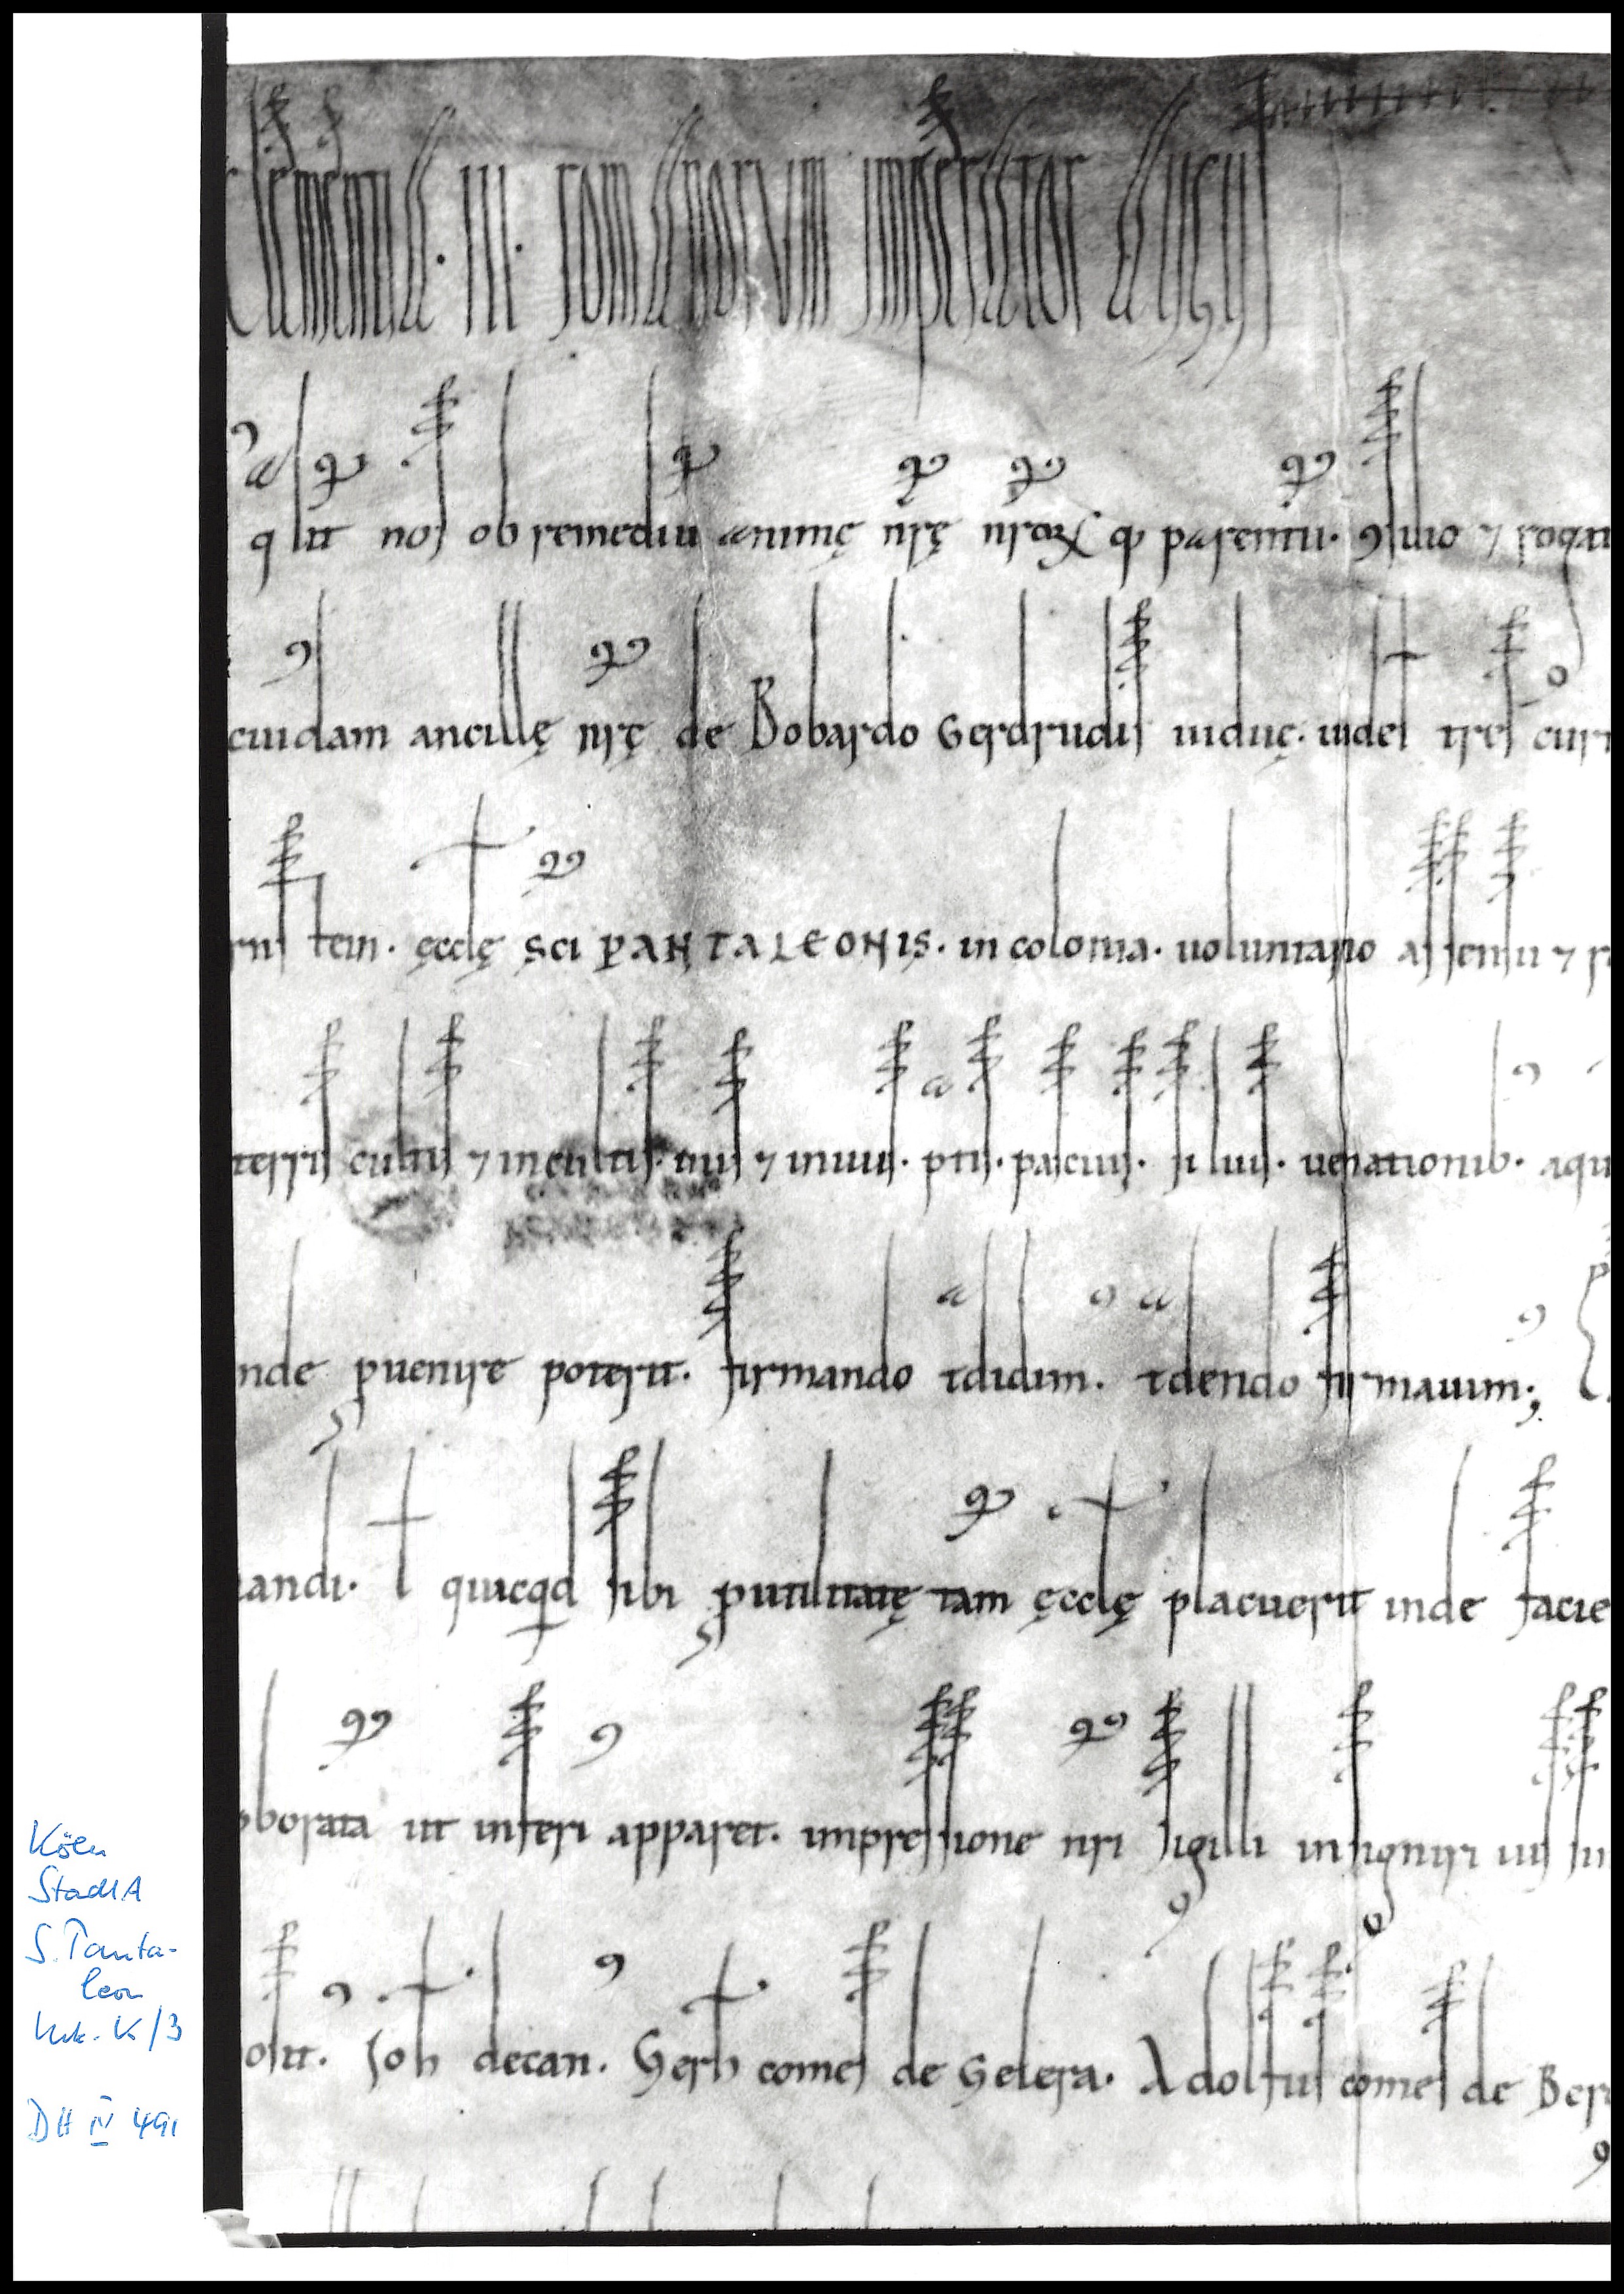 clementia · III · romanorum imperator august
qlit nos ob remediu animę nrę nrorꝝ q parentu · ꝯsilio ⁊ rogatu
cuidam ancillę nrę de Bobardo Gerdrudis uiduę · uidel tres curt
tem · ęcclę Sci PANTALEONIS · in colonia · uoluntario assensu ⁊
terris cultis ⁊ incultis · uiis ⁊ inuiis · ptis · pascuis · siluis · uenationib · aqu
nde puenire poterit · firmando tdidim · tdendo firmauim;
andi · l quicqd sibi putilitatę tam ęcclę placuerit inde facie
borata ut inferi apparet · impressione nri sigilli insigniri iussi
Joh decan · Gerh comes de Gelera · Adolfus comes de Ber
Köln
StadtA
S. Panta-
leon
Urk. K/3
DH IV 491